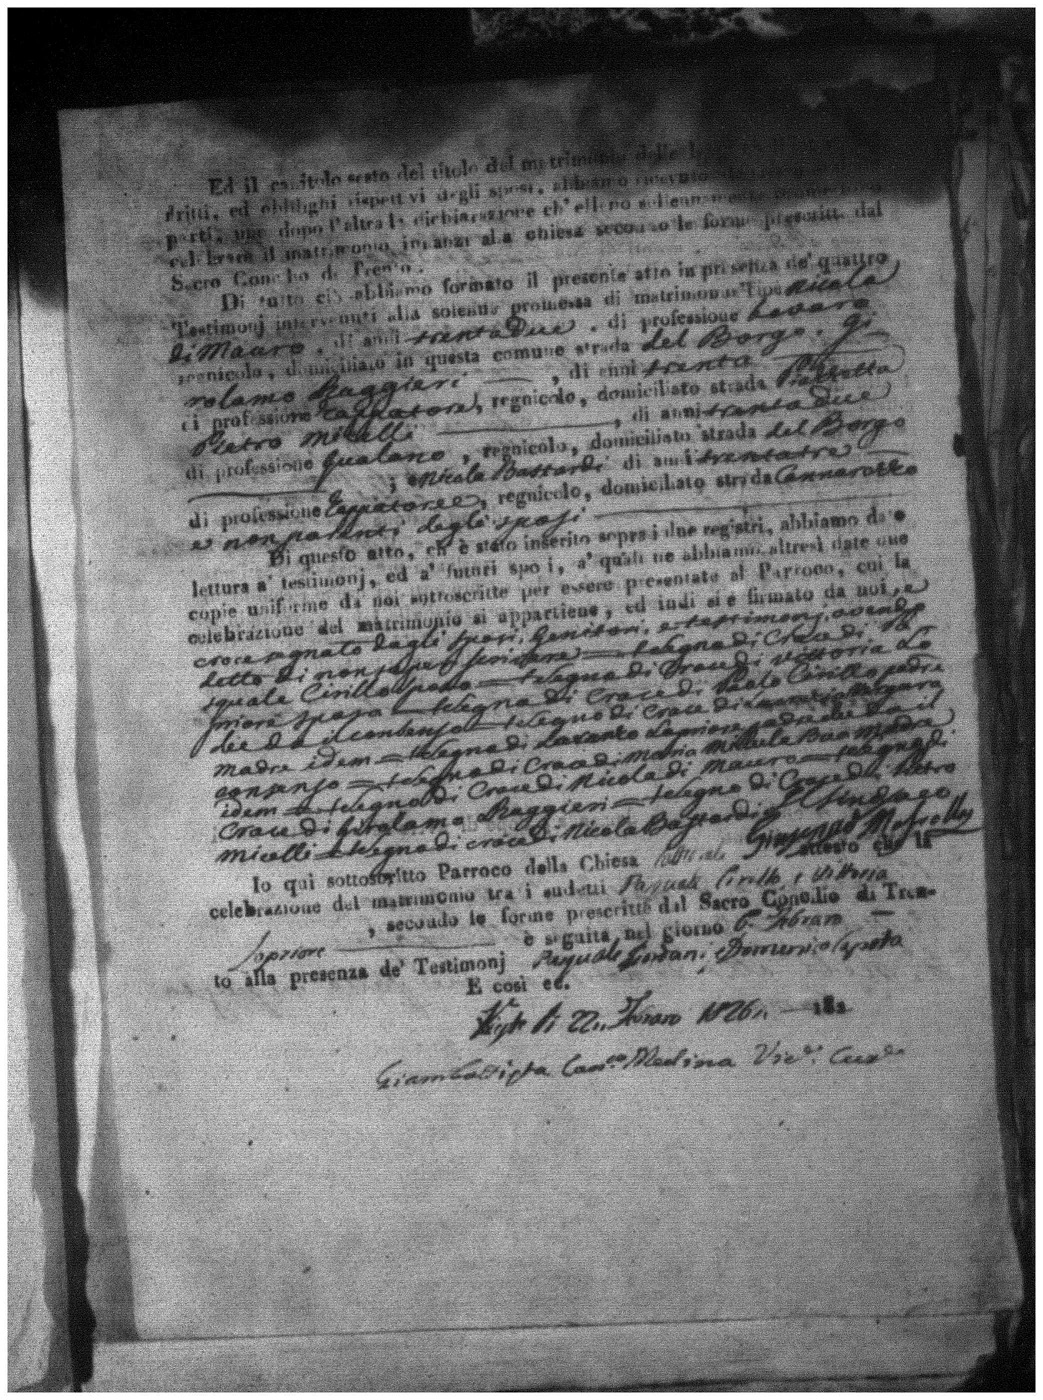 Ed il capitolo sesto del titolo del matrimonio delle
dritti, ed obblighi rispettivi degli sposi, abbiamo ricevuto
parti, una dopo l'altra la dichiarazione ch'elleno solennemente
celebrare il matrimonio innanzi alla chiesa secondo le forme prescritte dal
Sacro Concilio di Trento.
Di tutto ciò abbiamo formato il presente atto in presenza de' quattro
Testimonj intervenuti alla solenne promessa di matrimonio Nicola
di Mauro, di anni trentadue, di professione
regnicolo, domiciliato in questa comune strada del Borgo. Gi
rolamo Raggieri, di anni trenta
di professione Zappatore, regnicolo, domiciliato strada
Pietro Micelli, di anni trentadue
di professione Qualano, regnicolo, domiciliato strada del Borgo
; e Nicola Bastardi di anni trentatre
di professione Zappatore, regnicolo, domiciliato strada Cannarozzo
e non parenti degli sposi
Di questo atto, ch'è stato inserito sopra i due registri, abbiamo dato
lettura a' testimonj, ed a' futuri sposi, a' quali ne abbiamo altresì date due
copie uniforme da noi sottoscritte per essere presentate al Parroco, cui la
celebrazione del matrimonio si appartiene, ed indi si è firmato da noi, e
croce segnato dagli sposi, Genitori, e testimonj, avendo
detto di non saper scrivere = Segno di Croce di Pa
squale Cirillo sposo = Segno di Croce di Vittoria Lo
priore sposa = Segno di Croce di Paolo Cirillo padre
che dà il consenso = Segno di Croce di
madre idem = Segno di Lorenzo Lopriore padre che dà il
consenso = Segno di Croce di Maria Michela Buo madre
idem = Segno di Croce di Nicola di Mauro = Segno di
Croce di Girolamo Raggieri = Segno di Croce di Pietro
Micelli = Segno di croce di Nicola Bastardi = Il Sindaco
Giuseppe
Io qui sottoscritto Parroco della Chiesa attesto che la
celebrazione del matrimonio tra i sudetti Pasquale Cirillo e Vittoria
Lopriore, secondo le forme prescritte dal Sacro Concilio di Tren-
è seguita nel giorno 6 Febraro
to alla presenza de' Testimonj Pasquale Giordani, e Domenico
E così ec.
li 22 Febraro 1826 182
Giambattista Can.co Medina Vic.o Cur.to